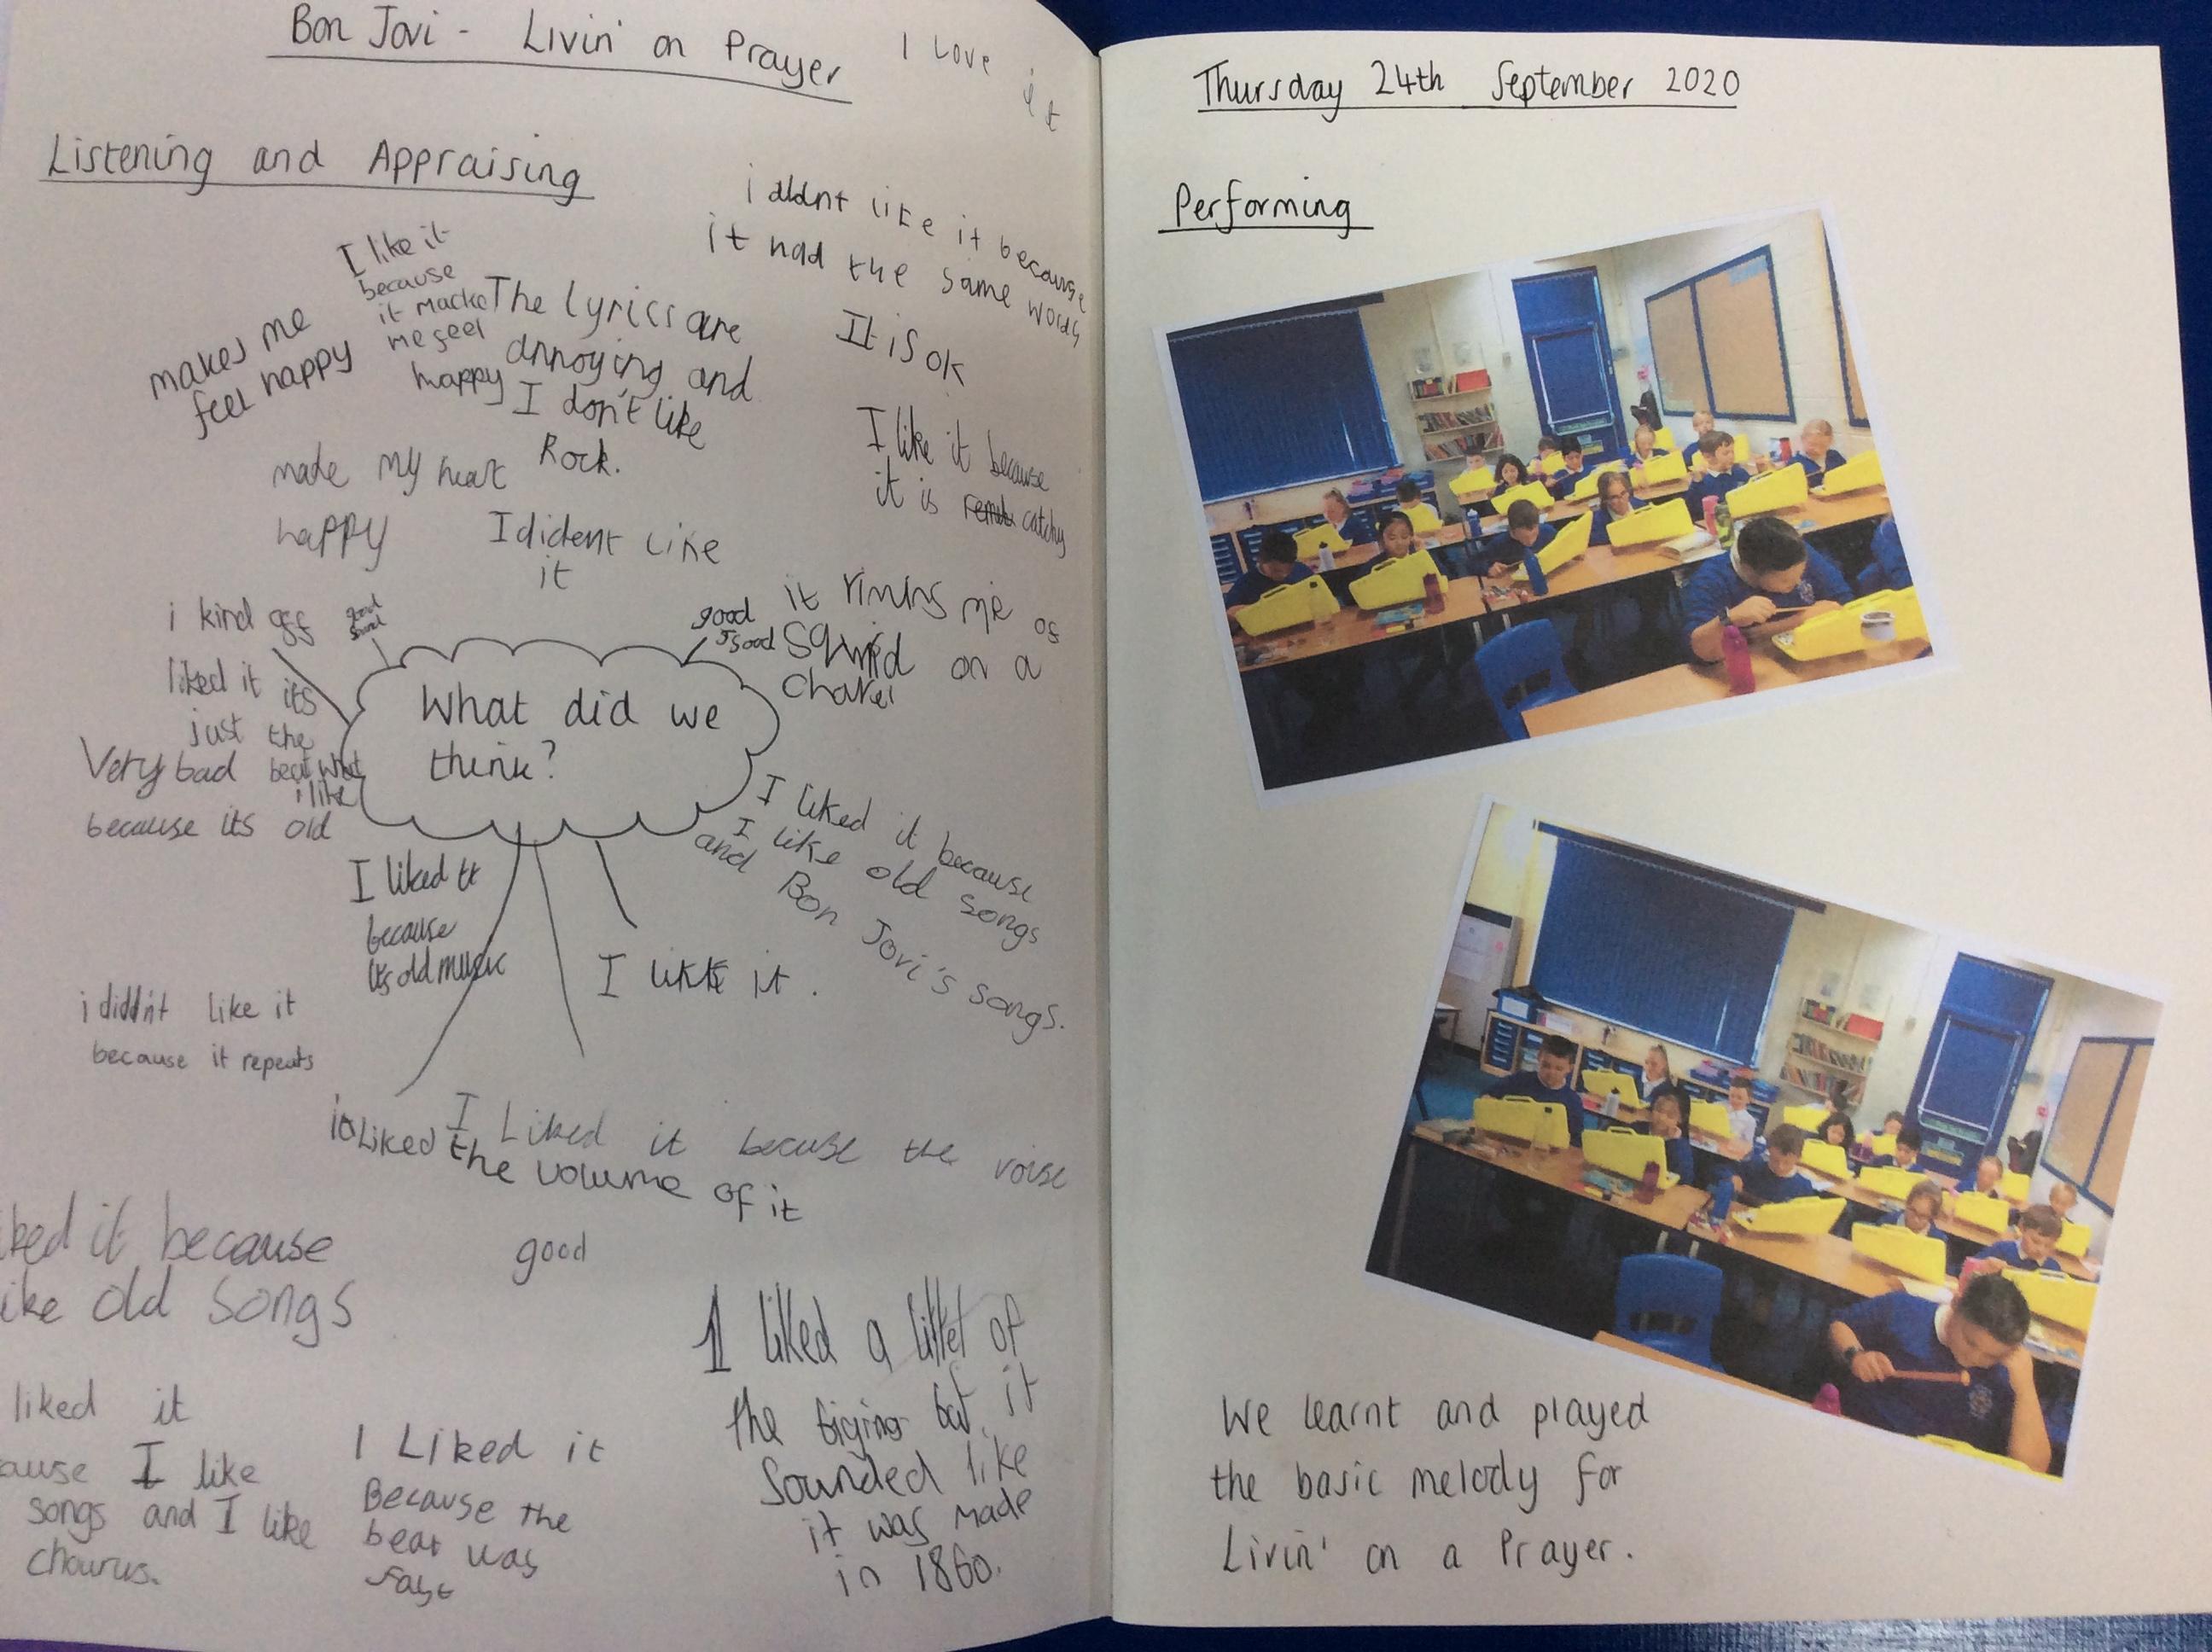 Bon Jovi - Livin' on Prayer
I Love
it
Listening and Appraising
i didnt like it because
it had the same words
I like it
because
it macke
me feel
happy
makes me
feel happy
The Lyrics are
annoying and
I don't like
Rock.
It is ok
I like it because
it is catchy
made my heart
happy
I dident like
it
i kind off
liked it its
just the
beat what
i like
good
good
good
it rimins me of
squid on a
What did we
think?
Very bad
because its old
I liked it because
I like old songs
and Bon Jovi's songs.
I liked it
because
its old music
I like it.
i diddn't like it
because it repeats
I Liked it becuse the voise
Liked the volume of it
ked it because
ike old songs
good
I liked a littel of
the biging but it
Sounded like
it was made
in 1860.
liked it
ause I like
songs and I like
chourus.
I Liked it
Because the
beat was
fast
Thursday 24th September 2020
Performing
We learnt and played
the basic melody for
Livin' on a Prayer.